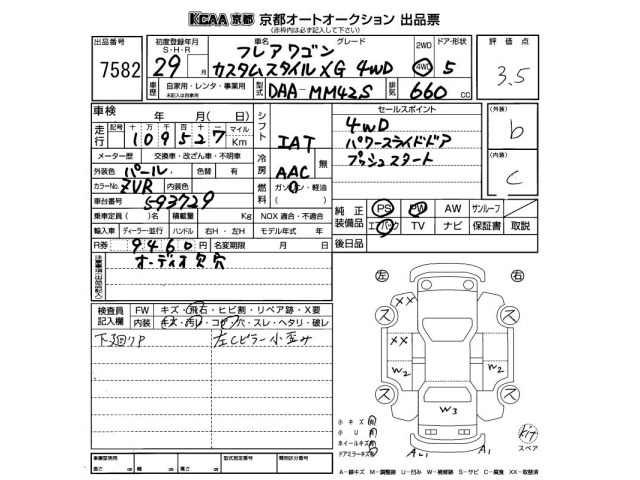 KCAA 京都 京都オートオークション 出品票
(赤枠内は必ず記入して下さい)
出品番号
7582
初度登録年月
S・H・R
29 月
車名
フレアワゴン
グレード
カスタムスタイルXG 4WD
2WD
4WD
ドア・形状
5
評価点
3.5
車歴
自家用・レンタ・事業用
未記入は自家用
型式
DAA-MM42S
排気
660 CC
車検
年 月( 日)
走行
記号 十 万 千 百 十
109527
マイル
Km
シフト
IAT
セールスポイント
4WD
パワースライドドア
プッシュスタート
(外装)
b
(内装)
C
メーター歴 交換車・改ざん車・不明車
外装色 パール
色替 有
カラーNo. ZVR 内装色
冷房
AAC
無
燃料
ガソリン・軽油
( )
車台番号 593729
乗車定員 ( )名 積載量 Kg
NOX 適合・不適合
輸入車 ディーラー・並行 ハンドル 右H・左H モデル年式 年
R券 9460円 名変期限 月 日
純正装備品
PS PW AW サンルーフ
エアバック TV ナビ 保証書 取説
後日品
注意事項(出品店記入)
オーディオ欠穴
検査員記入欄
FW キズ・飛石・ヒビ割・リペア跡・X要
内装 キズ・汚レ・コゲ・穴・スレ・ヘタリ・破レ
左Cピラー小歪み
左 右
XX
ス ス
XX
W2 W2
ス ス
W3
小キズ
小U
ホイールキズ
ドアミラーキズ
A1
スペア
車庫証明用
長さ cm 幅 cm 高さ cm
型式指定番号
類別区分番号
A-線キズ M-調整跡 U-凹み W-補修跡 S-サビ C-腐食 XX-取替済